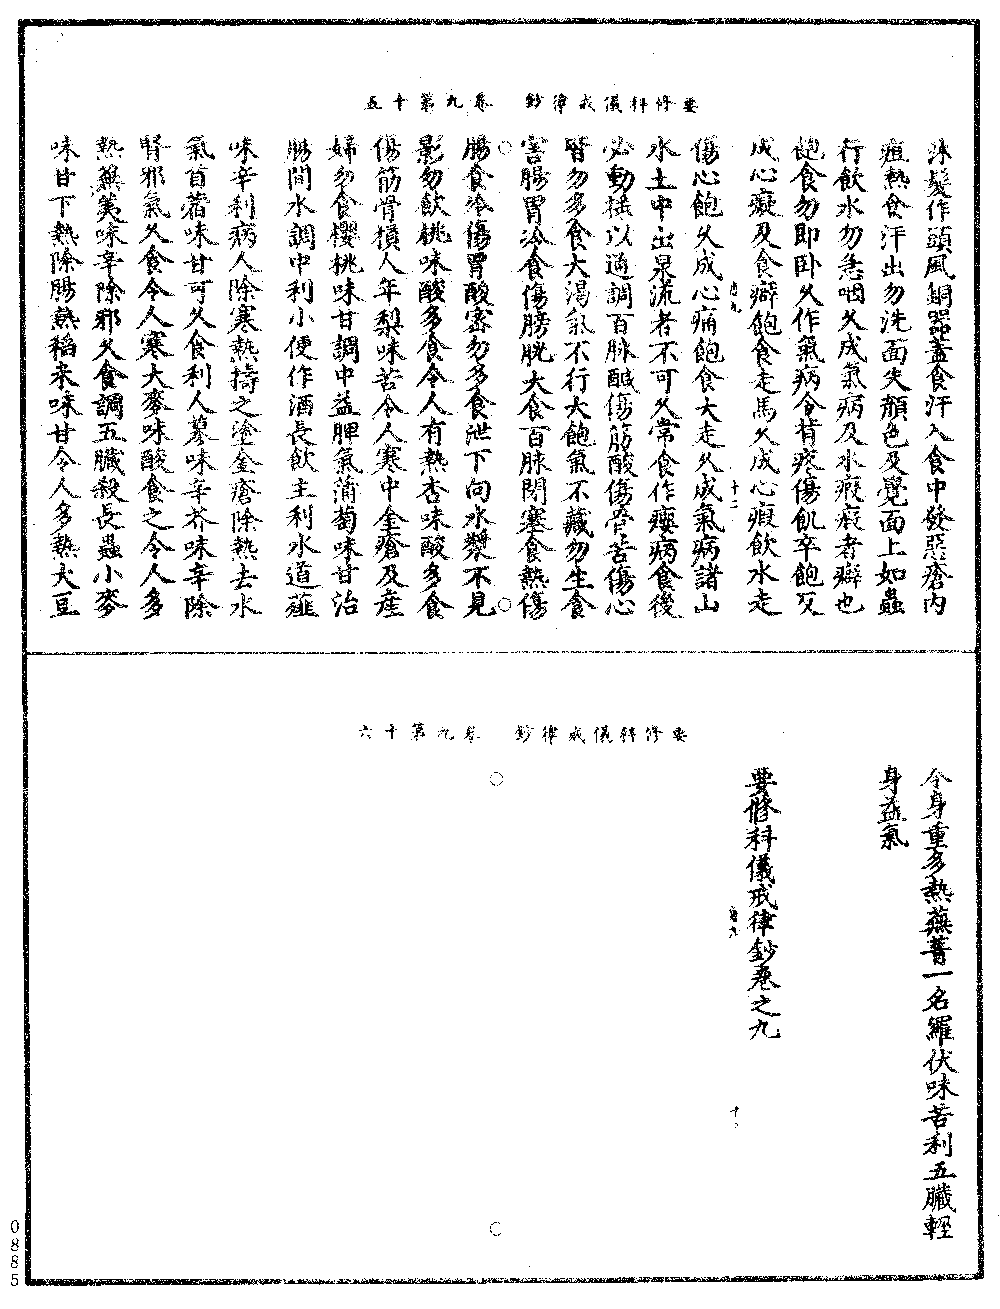 要修科儀戒律鈔 卷九第十五
沐髮作頭風銅器蓋食汗入食中發惡瘡內
疽熱食汗出勿洗面失顏色及覺面上如蟲
行飲水勿急咽久成氣病及水瘕瘕者癖也
飽食勿即卧久作氣病令背疼傷飢卒飽又
成心癡及食癖飽食走馬久成心瘕飲水走
傷心飽久成心痛飽食大走久成氣病諸山
水土中出泉流者不可久常食作癭病食後
必動搖以通調百脉醎傷筋酸傷骨苦傷心
皆勿多食大渴氣不行大飽氣不藏勿生食
害腸胃冷食傷膀胱大食百脉閉塞食熱傷
腸食冷傷胃酸蜜勿多食泄下向水漿不見
影勿飲桃味酸多食令人有熱杏味酸多食
傷筋骨損人年梨味苦令人寒中金瘡及產
婦勿食櫻桃味甘調中益脾氣蒲萄味甘治
腸間水調中利小便作酒長飲主利水道薤
味辛利病人除寒熱擣之塗金瘡除熱去水
氣苜蓿味甘可久食利人蓼味辛芥味辛除
腎邪氣久食令人寒大麥味酸食之令人多
熱蕪荑味辛除邪久食調五臟殺長蟲小麥
味甘下熱除腸熱稻米味甘令人多熱大豆
要修科儀戒律鈔 卷九第十六
令身重多熱蕪菁一名羅伏味苦利五臟輕
身益氣
要修科儀戒律鈔卷之九
0885